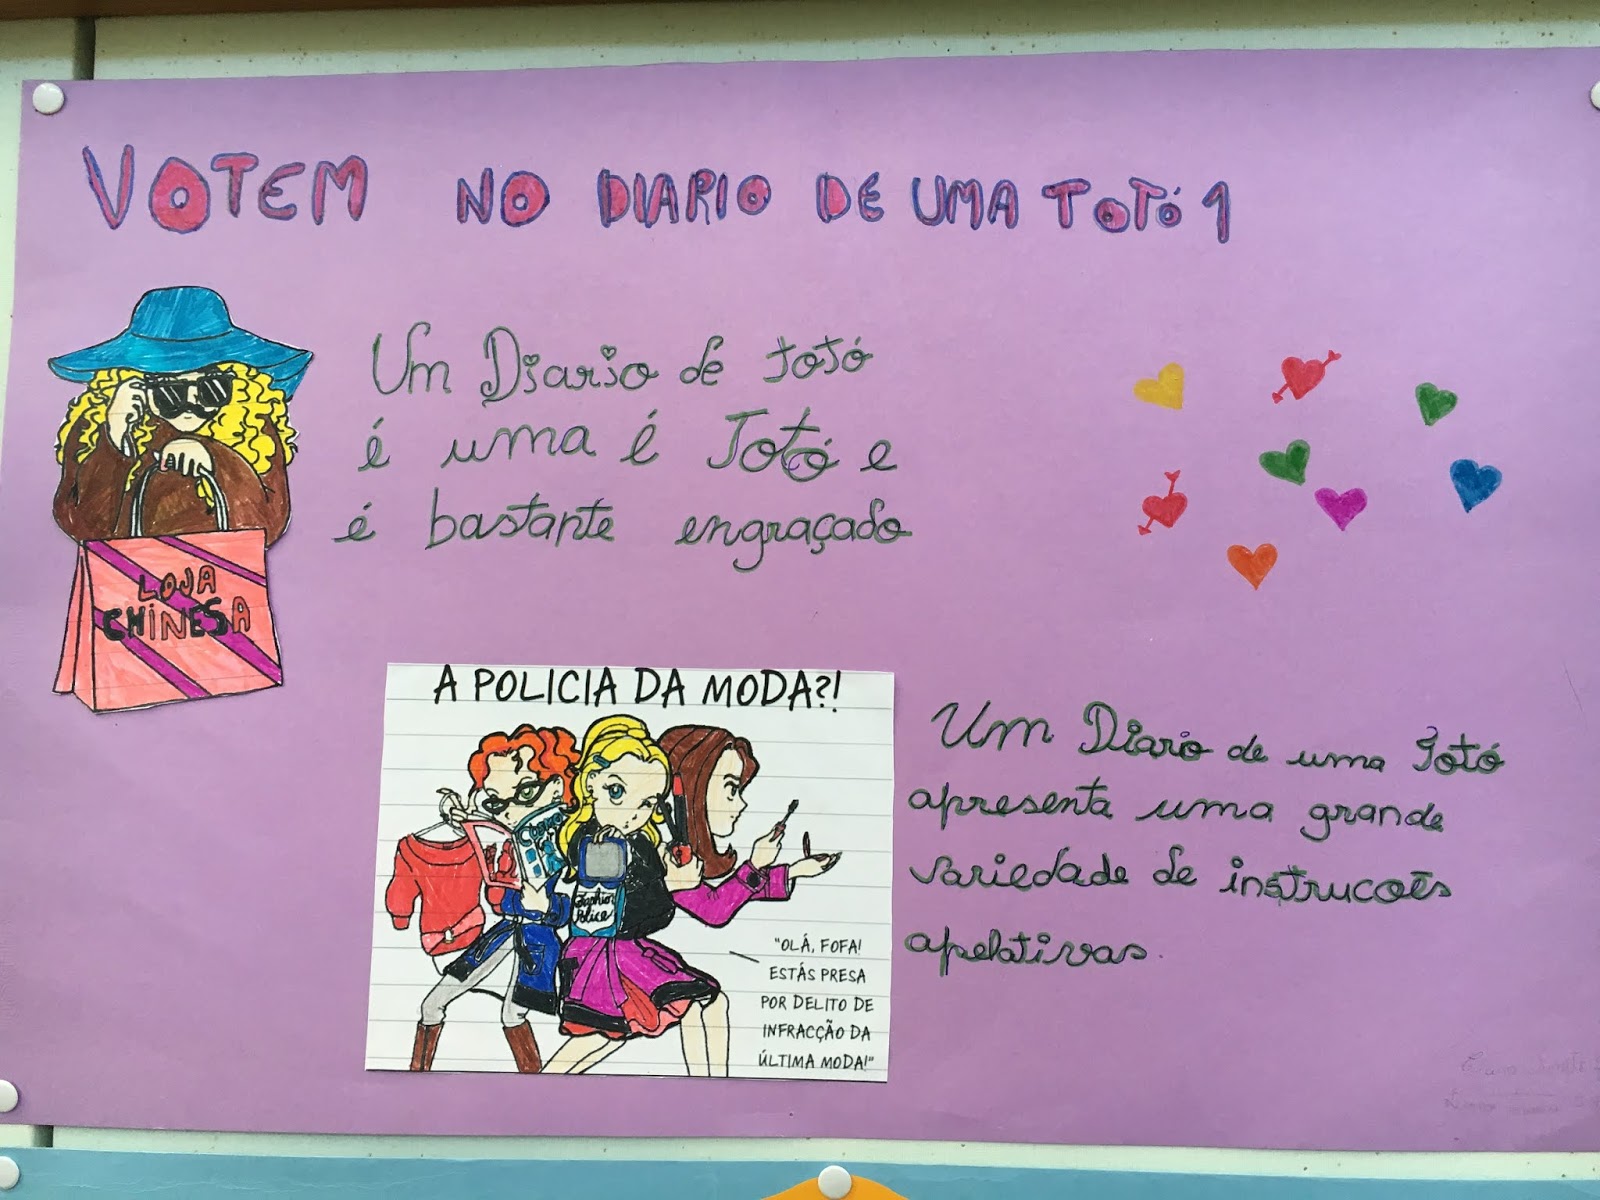 VOTEM NO DIARIO DE UMA TOTÓ 1
Um Diario de totó
é uma é Totó e
é bastante engraçado
LOJA
CHINESA
A POLICIA DA MODA?!
Fashion
Police
"OLÁ, FOFA!
ESTÁS PRESA
POR DELITO DE
INFRACÇÃO DA
ÚLTIMA MODA!"
Um Diario de uma Totó
apresenta uma grande
variedade de instrucoẽs
apelativas.